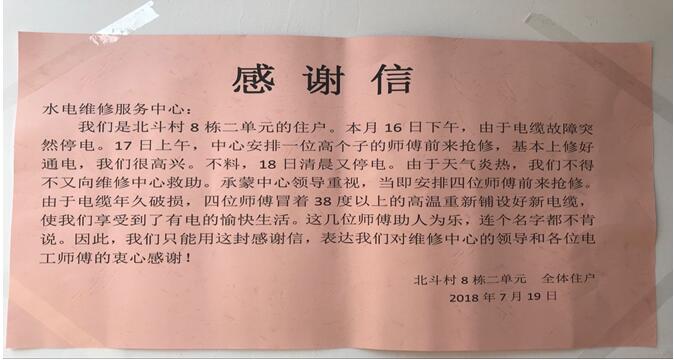 感谢信
水电维修服务中心：
我们是北斗村8栋二单元的住户。本月16日下午，由于电缆故障突
然停电。17日上午，中心安排一位高个子的师傅前来抢修，基本上修好
通电，我们很高兴。不料，18日清晨又停电。由于天气炎热，我们不得
不又向维修中心救助。承蒙中心领导重视，当即安排四位师傅前来抢修。
由于电缆年久破损，四位师傅冒着38度以上的高温重新铺设好新电缆，
使我们享受到了有电的愉快生活。这几位师傅助人为乐，连个名字都不肯
说。因此，我们只能用这封感谢信，表达我们对维修中心的领导和各位电
工师傅的衷心感谢！
北斗村8栋二单元 全体住户
2018年7月19日